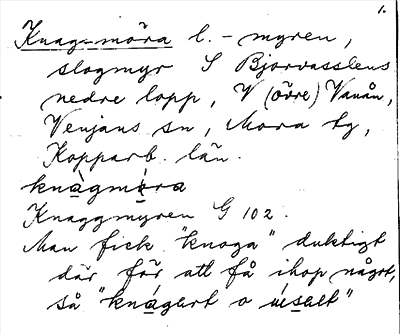 1.
Knag-möra l. - myren,
slogmyr S Bjorvasslens
nedre lopp, V (övre) Vanån,
Venjans sn, Mora tg,
Kopparb. län.
knàgmǫ́ra
Knaggmyren G 102.
Man fick "knoga" duktigt
där för att få ihop något,
så "knágärt o